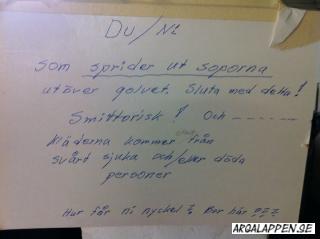 Du/Ni
som sprider ut soporna
utöver golvet. Sluta med detta!
Smittorisk! Och ------
ofta
kläderna kommer från
svårt sjuka och/eller döda
personer
Hur får ni nyckel? Bor här???
ARGALAPPEN.SE